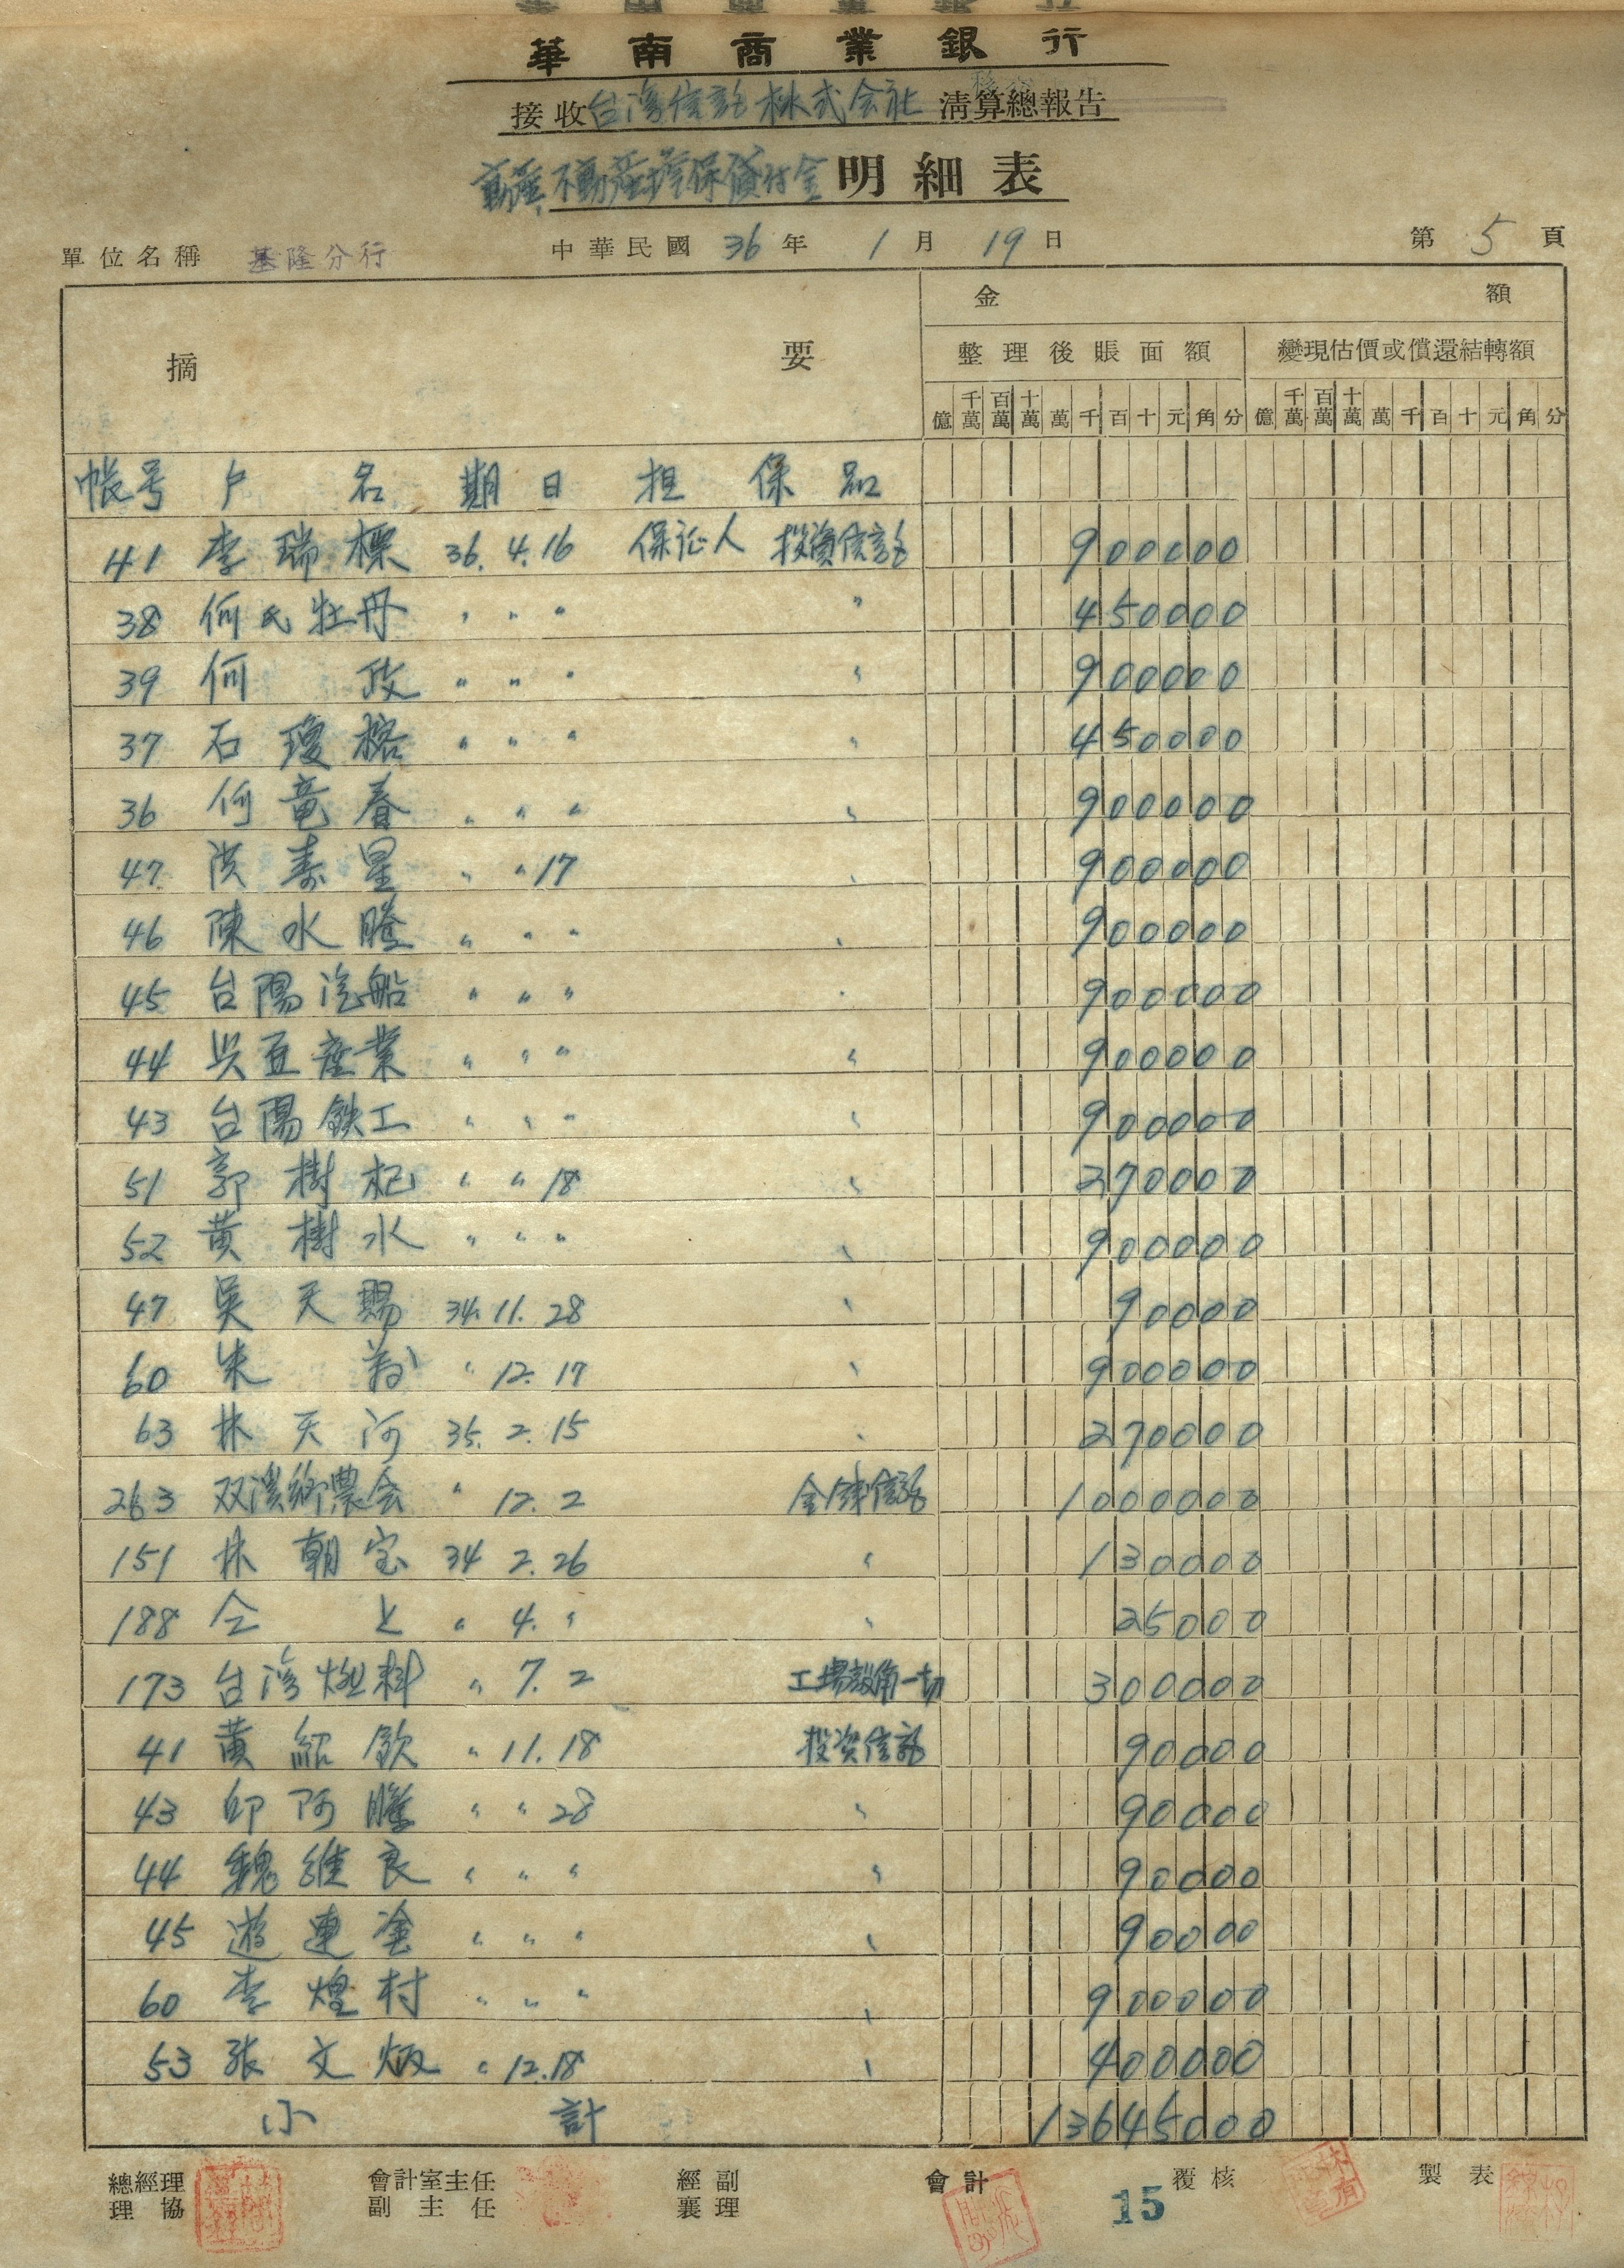 華南商業銀行
接收台湾信託株式会社清算總報告
動產、不動產擔保貸付金明細表
單位名稱 基隆分行 中華民國 36 年 1 月 19 日 第 5 頁
金額
摘要 整理後賬面額 變現估價或償還結轉額
億 千萬 百萬 十萬 萬 千 百 十 元 角 分 億 千萬 百萬 十萬 萬 千 百 十 元 角 分
帐号 户名 期日 担保品
41 李瑞標 36. 4. 16 保证人 投資信託 900000
38 何氏牡丹 〃 〃 〃 〃 450000
39 何政 〃 〃 〃 〃 900000
37 石瓊榕 〃 〃 〃 〃 450000
36 何竜春 〃 〃 〃 〃 900000
47 洪寿星 〃 〃 17 〃 900000
46 陳水騰 〃 〃 〃 〃 900000
45 台陽汽船 〃 〃 〃 〃 900000
44 興亜産業 〃 〃 〃 〃 900000
43 台陽鉄工 〃 〃 〃 〃 900000
51 郭樹杞 〃 〃 18 〃 270000
52 黄樹水 〃 〃 〃 〃 900000
47 吳天賜 34. 11. 28 〃 90000
60 朱 〃 12. 17 〃 900000
63 林天河 35. 2. 15 〃 270000
263 双溪鄉農会 〃 12. 2 金銭信託 1000000
151 林朝宝 34 2. 26 〃 130000
188 仝上 〃 4. 〃 〃 25000
173 台湾燃料 〃 7. 2 工場設備一切 300000
41 黄紹欽 〃 11. 18 投资信託 90000
43 邱阿騰 〃 〃 28 〃 90000
44 魏維良 〃 〃 〃 〃 90000
45 游連塗 〃 〃 〃 〃 90000
60 李煌村 〃 〃 〃 〃 900000
53 张文炳 〃 12. 18 〃 400000
小計 13645000
總經理 會計室主任 經副 會計 覆核 製表
理協 副主任 襄理
15